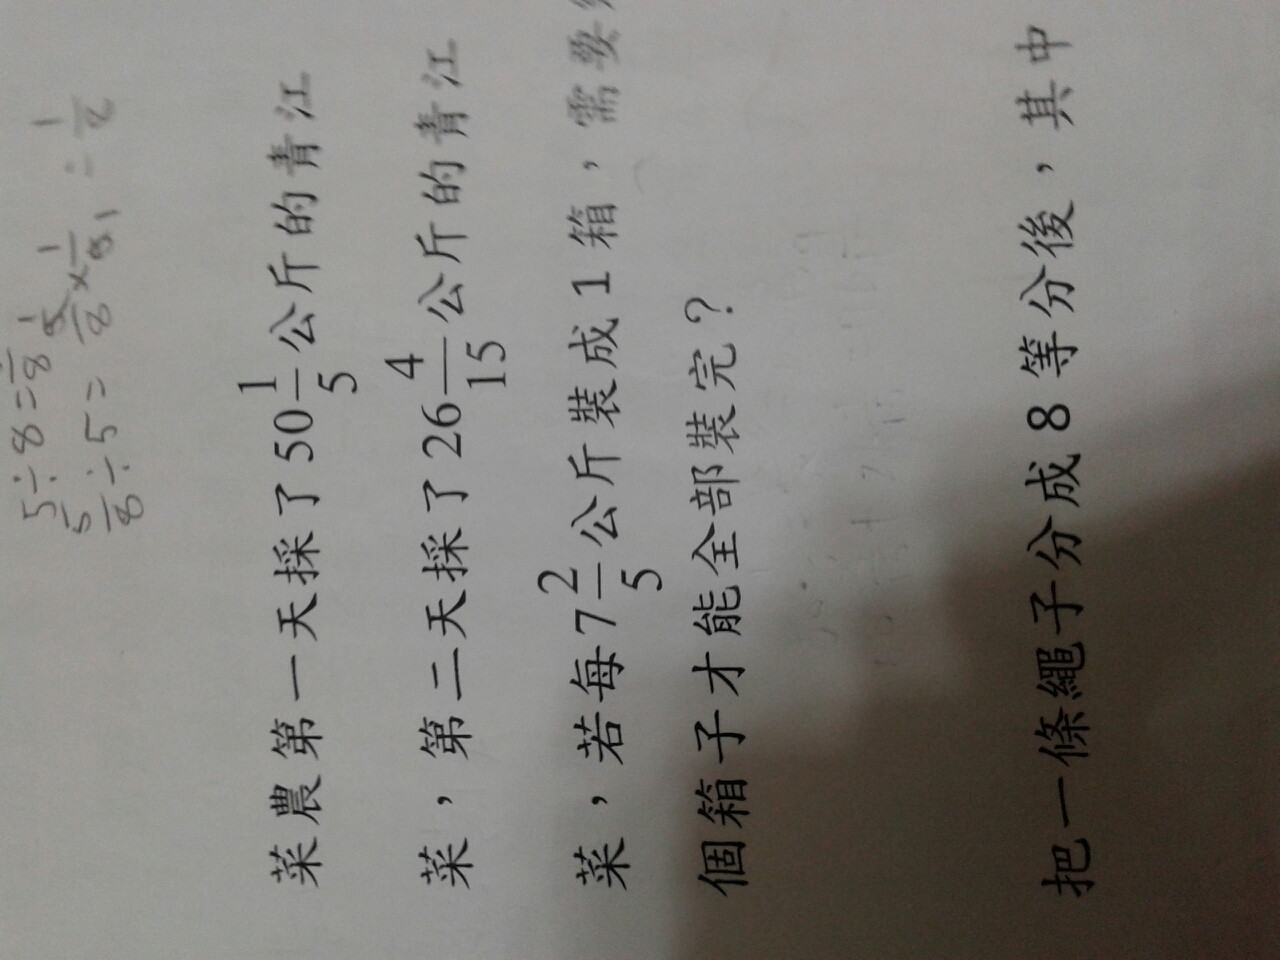 5÷8=
5/8÷5=5/8×1/5=1/8
菜農第一天採了50 1/5公斤的青江
菜，第二天採了26 4/15公斤的青江
菜，若每7 2/5公斤裝成1箱，需要
個箱子才能全部裝完？
把一條繩子分成8等分後，其中